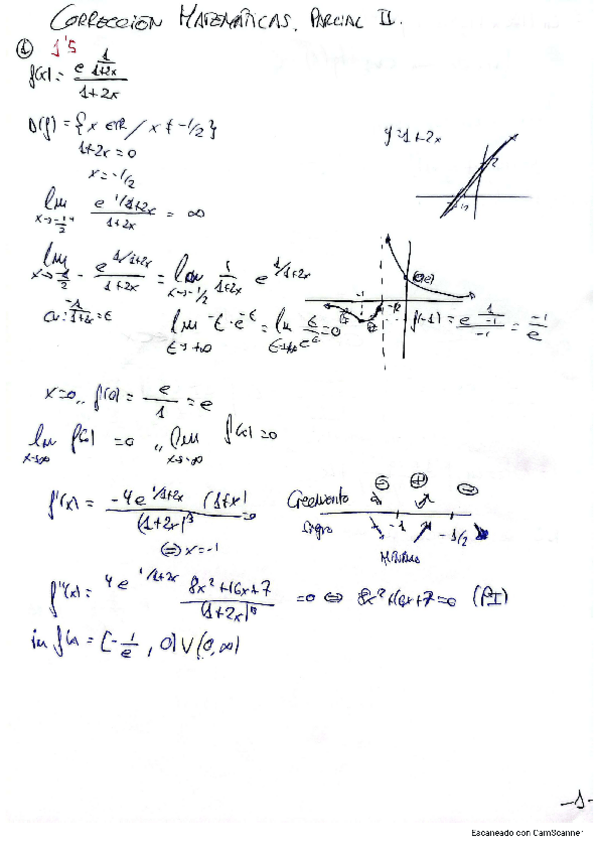 CORRECCIÓN MATEMÁTICAS. PARCIAL II.
① 1'5
f(x) = e^(1/(1+2x)) / (1+2x)
D(f) = {x ∈ ℝ / x ≠ -1/2}
1+2x = 0
x = -1/2
y = 1+2x
lim x→-1/2⁺ e^(1/1+2x) / (1+2x) = ∞
lim x→-1/2⁻ e^(1/1+2x) / (1+2x) = lim x→-1/2 1/(1+2x) e^(1/1+2x)
-1/(1+2x) = t
lim t→+∞ -t·e^(-t) = lim t→+∞ t/e^t = 0
f(-1) = e^(1/-1) / -1 = -1/e
x=0,, f(0) = e/1 = e
lim x→∞ f(x) = 0 ,, lim x→-∞ f(x) = 0
f'(x) = -4e^(1/1+2x) (1+x) / (1+2x)³ = 0
⇔ x = -1
Crecimiento ⊖ ⊕ ⊖
Signo -1 -1/2
MÍNIMO
f''(x) = 4e^(1/1+2x) (8x²+16x+7) / (1+2x) = 0 ⇔ 8x²+16x+7=0 (PI)
im f(x) = [-1/e, 0) ∪ (0, ∞)
-1-
Escaneado con CamScanner